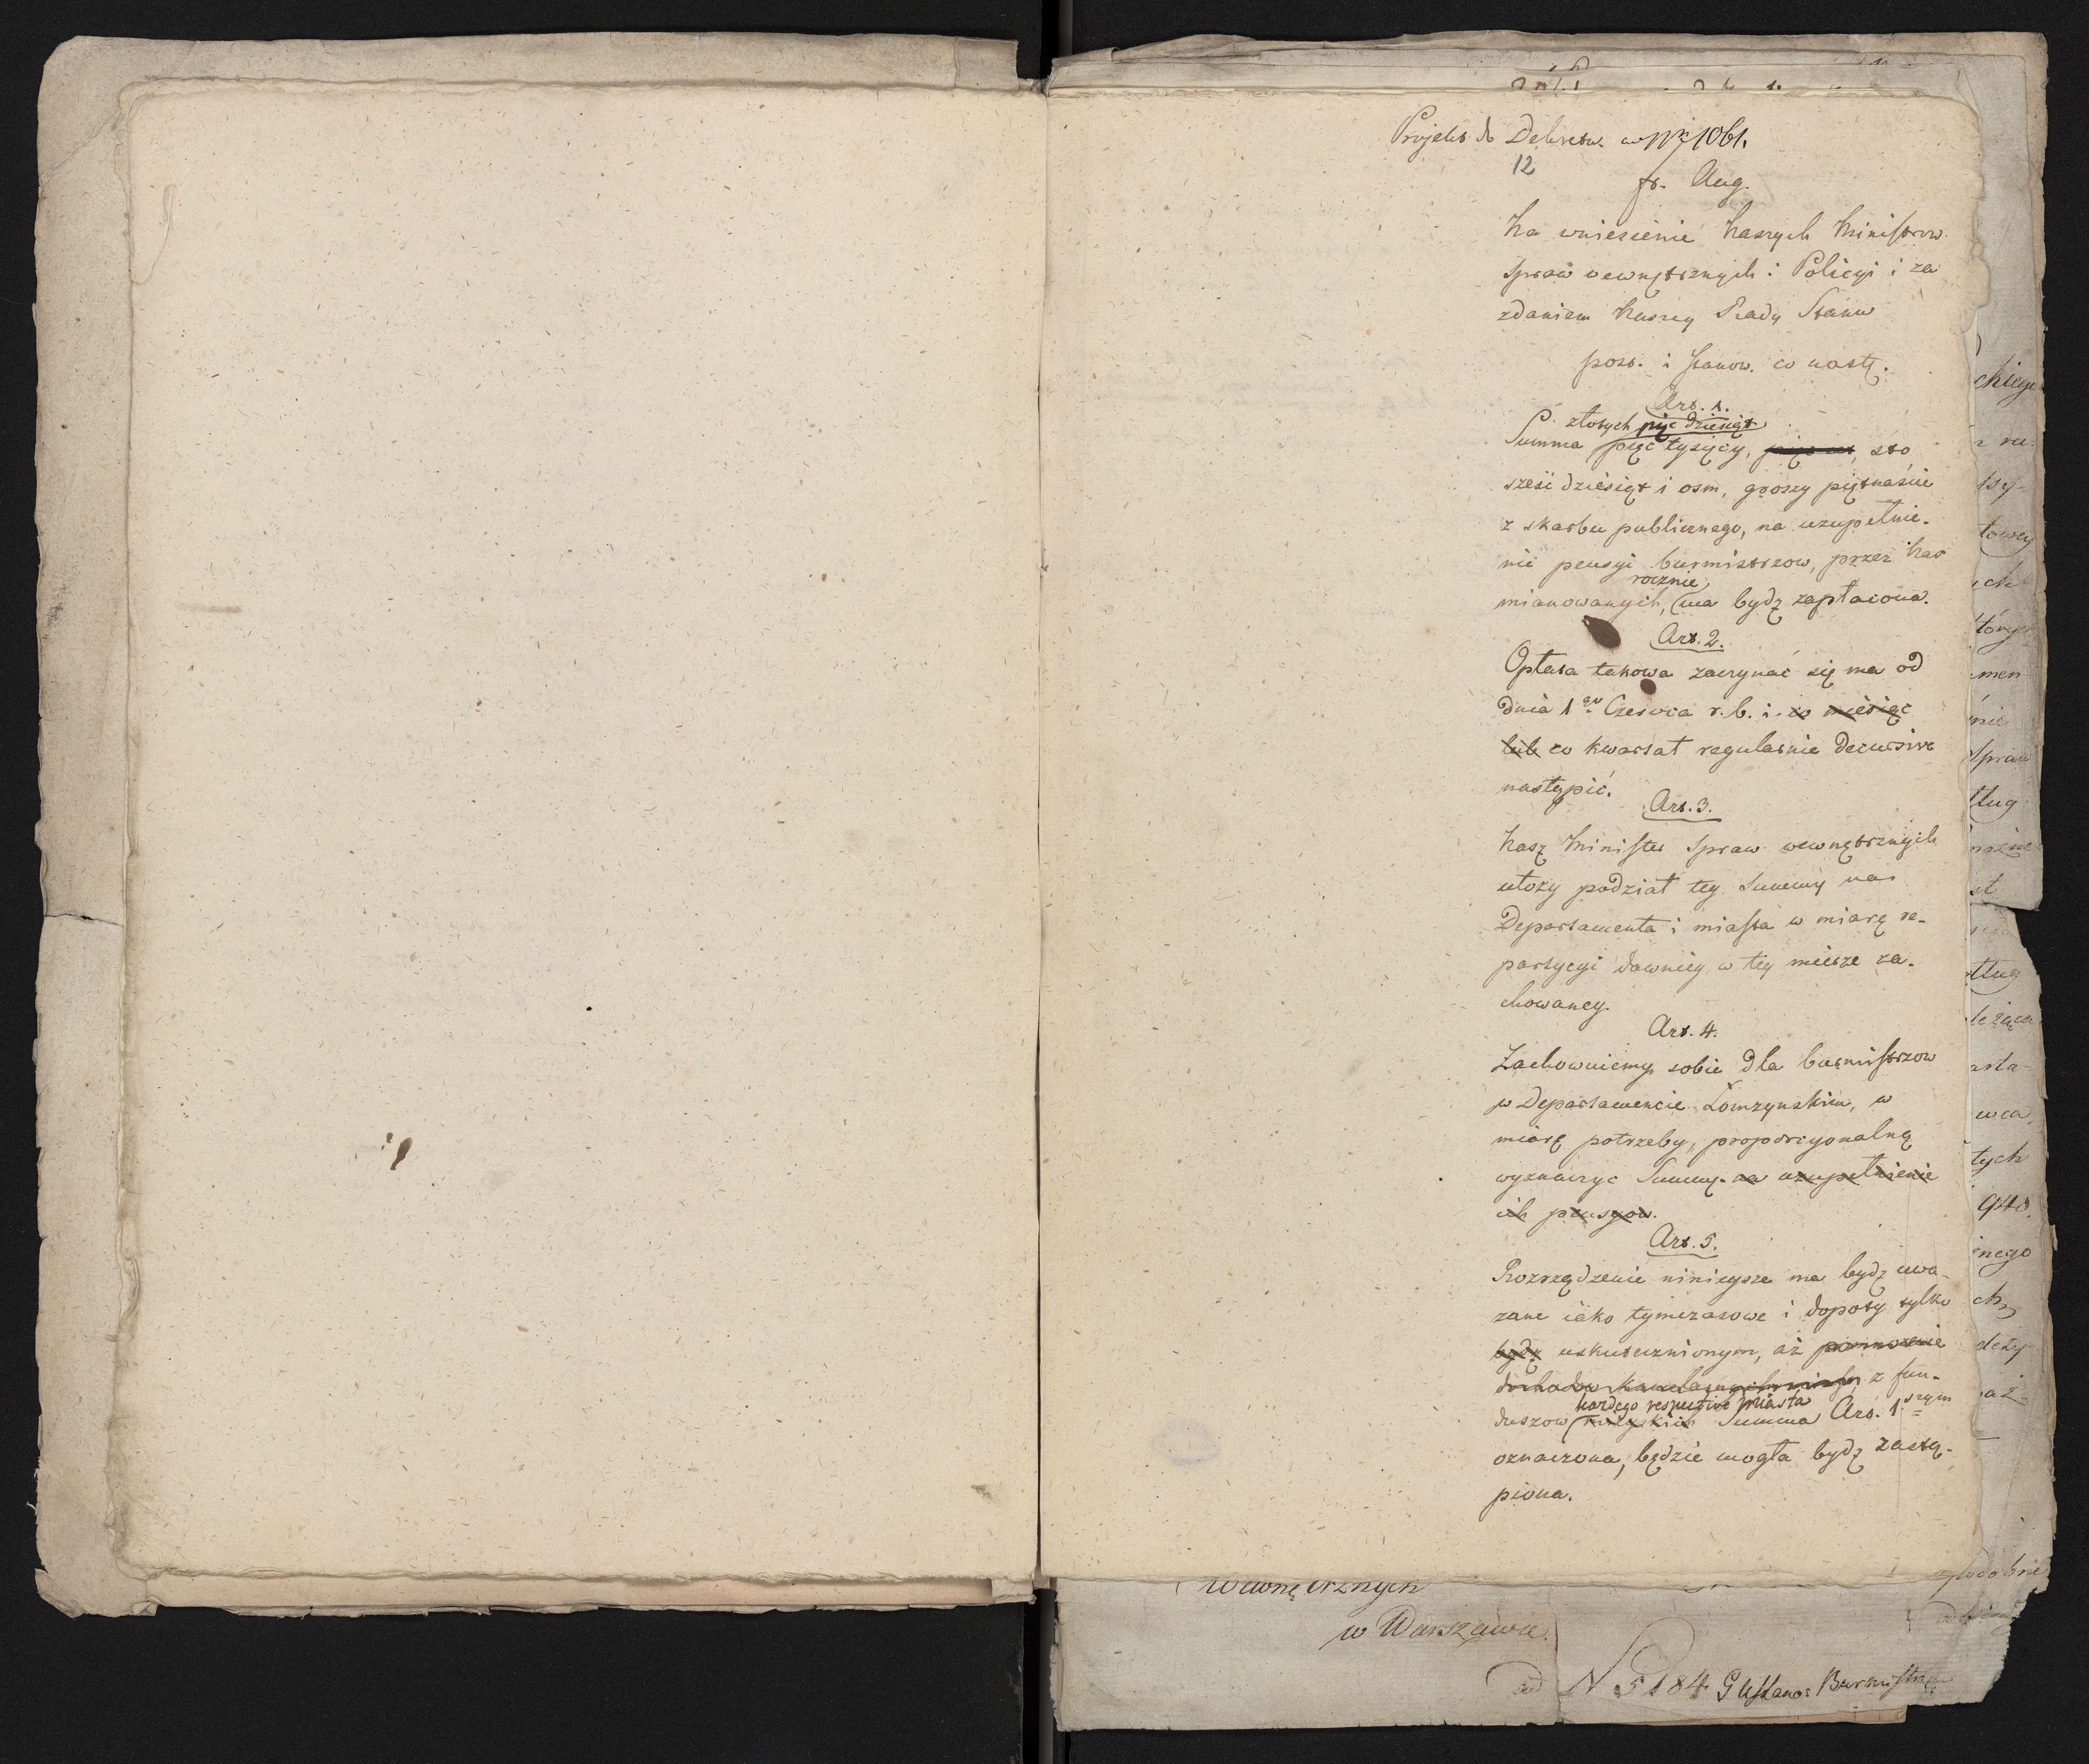 Projekt do Dekretu. ad Nr 1061.
12
fr. Aug.
Na wniesienie Naszych Ministrow
Spraw wewnętrznych i Policyi i za
zdaniem Naszey Rady Stanu
post. i stanow. co nastę.
Art. 1.
złotych pięćdziesiąt
Summa pięć tysięcy, pięćset, sto,
sześćdziesiąt i osm, groszy piętnaście
z skarbu publicznego, na uzupełnie-
nie pensyi burmistrzow, przez Nas
rocznie
mianowanych, ma bydź zapłacona.
Art. 2.
Opłata takowa zaczynać się ma od
dnia 1go Czerwca r. b. i co miesiąc
lub co kwartał regularnie decursive
nastąpić.
Art. 3.
Nasz Minister Spraw wewnętrznych
ułoży podział tey Summy na
Departamenta i miasta w miarę re-
partycyi dawniey w tey mierze za-
chowaney.
Art. 4.
Zachowuiemy sobie dla burmistrzow
w Departamencie Łomżynskim, w
miarę potrzeby, proporcyonalną
wyznaczyc Summę na uzupełnienie
ich pensyow.
Art. 5.
Rozrządzenie ninieysze ma bydź uwa-
żane iako tymczasowe i dopoty tylko
bydź uskutecznionym, aż pomnożenie
z fun-
każdego respective miasta
duszow mieyskich Summa Art. 1szym
oznaczona, będzie mogła bydź zastą-
piona.
Wewnętrznych
w Warszawie.
ad N 5184 Gustanos Burmistrz